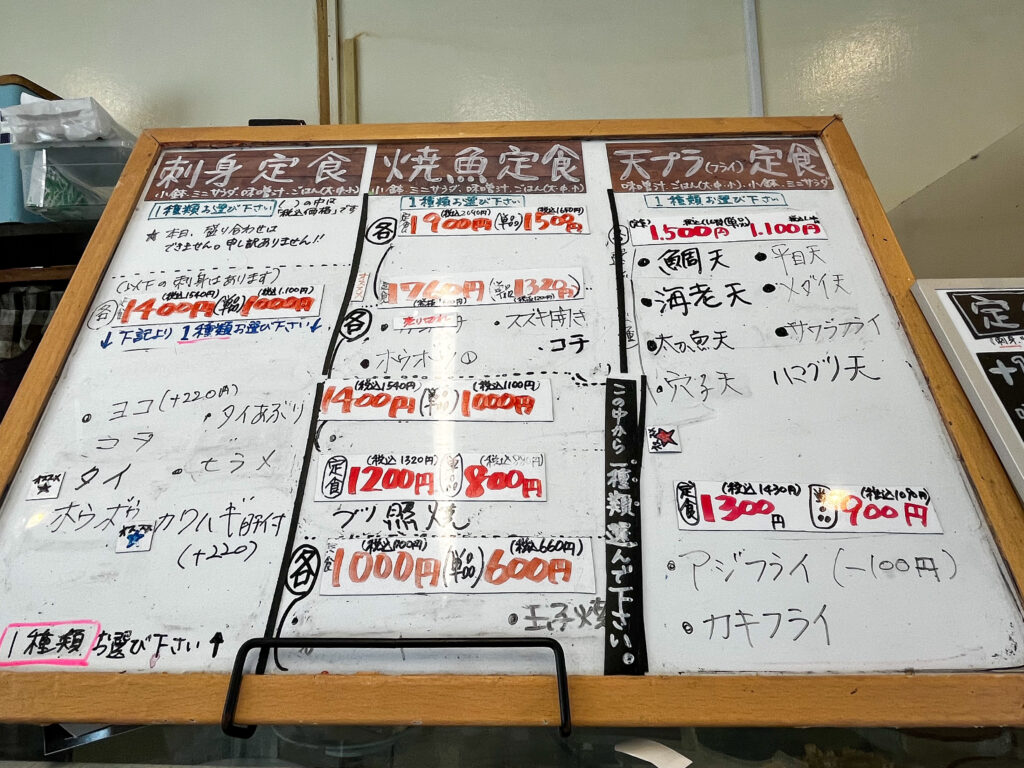 刺身定食
小鉢.ミニサラダ.味噌汁.ごはん(大.中.小)
1種類お選び下さい
( )の中は
"税込価格"です
★本日、盛り合わせは
できません。申し訳ありません!!
(以下の刺身はあります)
(税込1540円) (税込1,100円)
各 1400円(単品)1000円
↓下記より1種類お選び下さい↓
・ヨコ(+220円)
・タイあぶり
コチ
オススメ★
タイ
・ヒラメ
ホウボウ
カワハギ肝付
(+220)
1種類お選び下さい↑
焼魚定食
小鉢.ミニサラダ.味噌汁.ごはん(大.中.小)
1種類お選び下さい
各
1900円(単品)1500円
オススメ
各
売り切れ
・スズキ塩焼き
・コチ
(税込1540円) (税込1100円)
1400円(単品)1000円
(税込1320円)
定食1200円 単品800円
ブリ照焼
(税込660円)
各 1000円(単品)600円
・玉子焼
この中から一種類選んで下さい。
天プラ(フライ)定食
味噌汁.ごはん(大.中.小).ミニサラダ
1種類お選び下さい
1.500円(単品)1.100円
・鯛天
・平目天
・海老天
・メダイ天
・太刀魚天
・サワラフライ
・穴子天
ハマグリ天
(税込1430円)
定食1300円
900円
アジフライ(-100円)
カキフライ
定